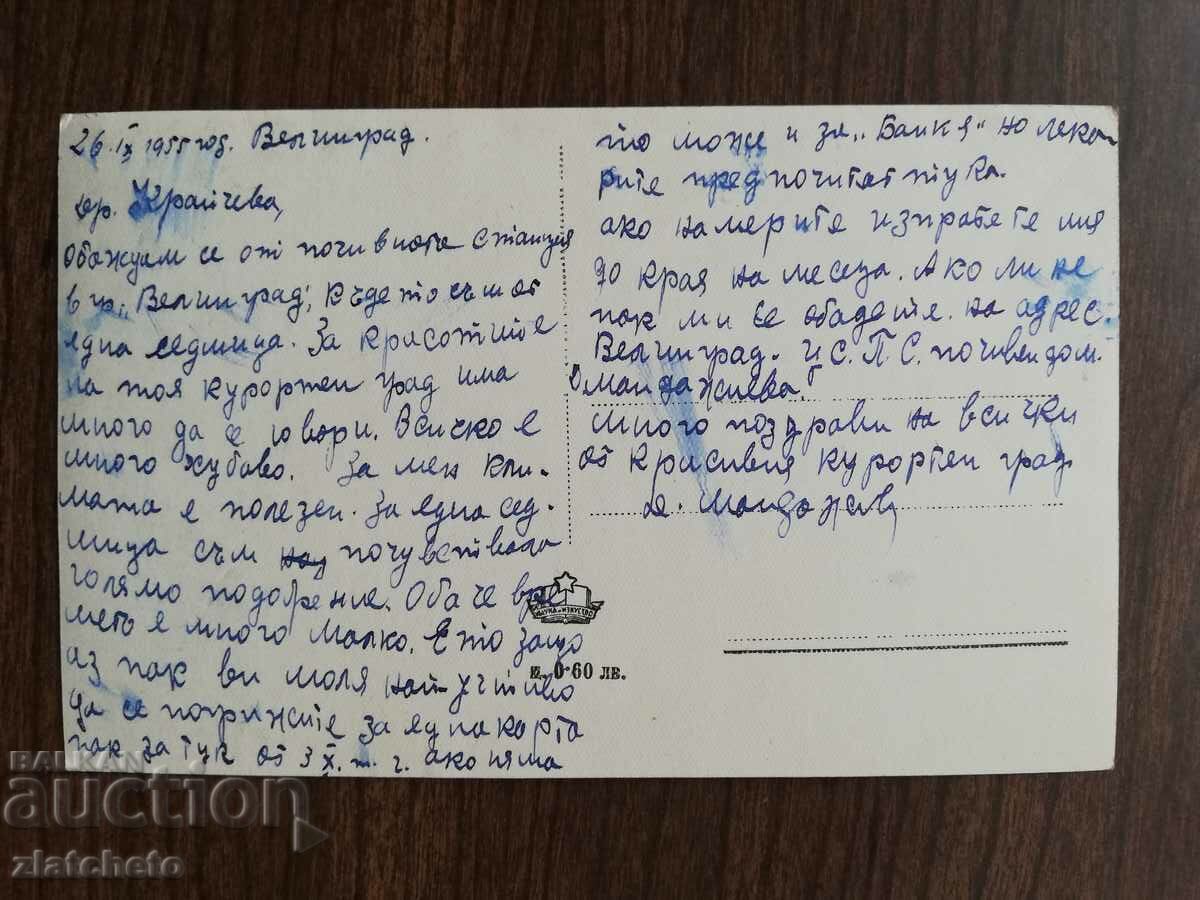 26. IX 1955 год. Велинград.
др. Крайчева,
Обаждам се от почивната станция
в гр. „Велинград", където съм от
една седмица. За красотите
на тоя курортен град има
много да се говори. Всичко е
много хубаво. За мен кли-
мата е полезен. За една сед-
мица съм почувствала
голямо подобрение. Обаче вре
мето е много малко. Ето защо
аз пак ви моля най-учтиво
да се погрижите за една карта
пак за тук от 3 X. т. г. ако няма
то може и за „Банкя" но лека-
рите предпочитат тука.
ако намерите изпратете мия
до края на месеца. Ако ли не
пак ми се обадете. на адрес.
Велинград. Ц.С.П.С. почивен дом.
Манджиева.
Много поздрави на всички
от красивия курортен град
НАУКА И ИЗКУСТВО
Ц. 0·60 ЛВ.
BALKAN
auction
zlatcheto